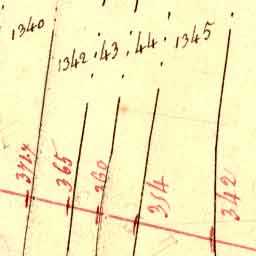 1340
1342
43
44
1345
365
360
354
342